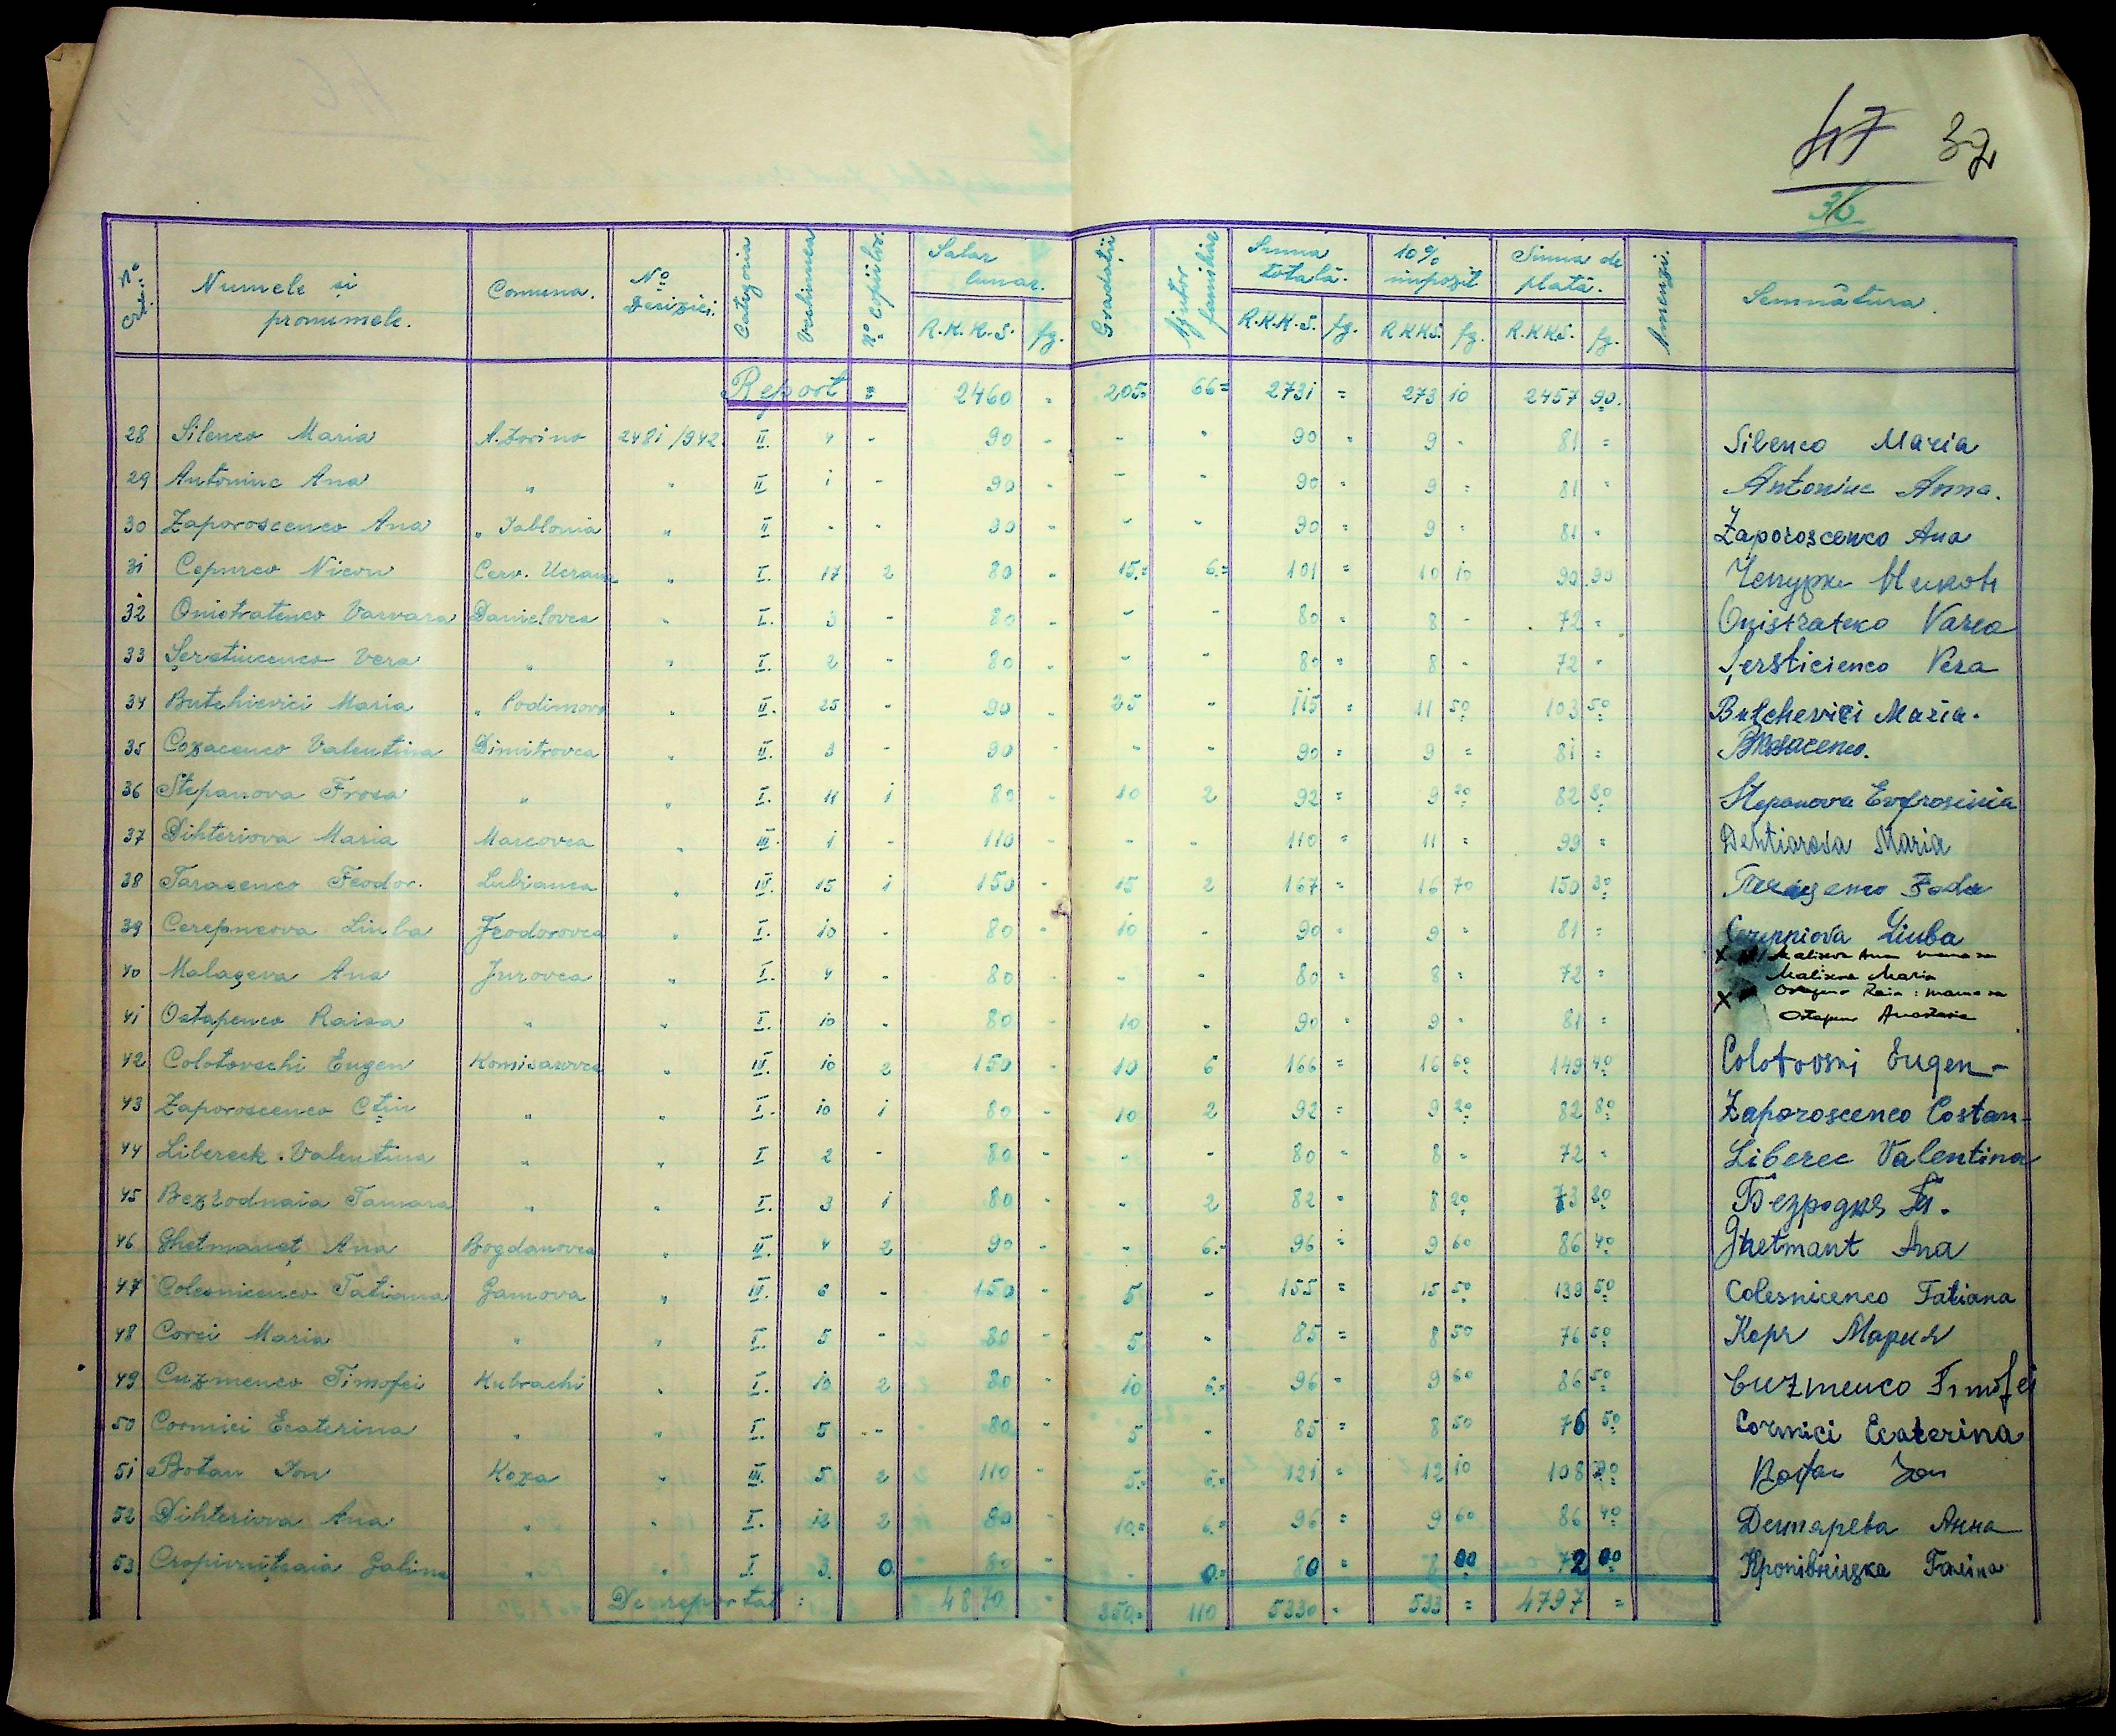 47 37
36
No crt. Numele și pronumele. Comuna. No Deciziei. Categoria Vechimea No Copiilor. Salar lunar. Gradații Ajutor familiar Suma totală. 10% impozit Suma de plată. Amenzi. Semnătura.
R.K.K.S. fg. R.K.K.S. fg. R.K.K.S. fg. R.K.K.S. fg.
Report = 2460 - 205= 66= 2731 = 273 10 2457 90.
28 Silenco Maria A. Zorino 2481/942 II. 4 - 90 - - " 90 = 9 - 81 = Silenco Maria
29 Antoniuc Ana " " II 1 - 90 - - " 90 = 9 = 81 = Antoniuc Anna.
30 Zaporoscenco Ana " Iablonia " II - - 90 - - " 90 = 9 = 81 = Zaporoscenco Ana
31 Cepurco Nicon Cerv. Ucrainca " I. 17 2 80 - 15.= 6.= 101 = 10 10 90 90 Чепурко Никон
32 Onistratenco Varvara Danielovca " I. 3 - 80 - - - 80 = 8 - 72 = Onistrateco Varea
33 Șerstiucenco Vera " " I. 2 - 80 - - " 80 = 8 - 72 = Șersticienco Vera
34 Butchievici Maria " Podimovo " II. 25 - 90 - 25 - 115 = 11 50 103 50 Butchevici Maria.
35 Cozacenco Valentina Dimitrovca " II. 3 - 90 - - - 90 = 9 = 81 =
36 Stepanova Frosa " " I. 11 1 80 - 10 2 92 = 9 20 82 80 Stepanova Evfrosinia
37 Dihteriova Maria Marcovca " III. 1 - 110 - - - 110 = 11 = 99 = Dehtiarova Maria
38 Tarasenco Feodor. Lubianca " IV. 15 1 150 - 15 2 167 = 16 70 150 30
39 Cerepncova Liuba Feodorovca " I. 10 - 80 - 10 - 90 = 9 - 81 = Liuba
40 Malașeva Ana Jurovca " I. 4 - 80 - - - 80 = 8 = 72 = X Ana mama sa
Malișeva Maria
41 Ostapenco Raisa " " I. 10 - 80 - 10 - 90 - 9 - 81 = X Raia : mama sa
Anastasia
42 Colotovschi Eugen Komisarovca " IV. 10 2 150 - 10 6 166 = 16 60 149 40 Colotovski Eugen -
43 Zaporoscenco C-tin " " I. 10 1 80 - 10 2 92 = 9 20 82 80 Zaporoscenco Costan-
44 Libereck Valentina " " I 2 - 80 - - - 80 = 8 = 72 = Liberec Valentina
45 Bezrodnaia Tamara " " I. 3 1 80 - - 2 82 = 8 20 73 80 Безродняя Т.
46 Ghetmaneț Ana Bogdanovca " II. 4 2 90 - - 6.- 96 = 9 60 86 40 Ghetmant Ana
47 Colesnicenco Tatiana Gamova " IV. 6 - 150 - 5 - 155 = 15 50 139 50 Colesnicenco Tatiana
48 Corci Maria " " I. 5 - 80 - 5 - 85 = 8 50 76 50 Корч Мария
49 Cuzmenco Timofei Kubrachi " I. 10 2 80 - 10 6.= 96 = 9 60 86 50 Cuzmenco Timofei
50 Cormici Ecaterina " " I. 5 - 80 - 5 - 85 = 8 50 76 50 Cormici Ecaterina
51 Botan Ion Koza " III. 5 2 110 - 5.= 6.= 121 = 12 10 108 90 Botan Ion
52 Dihteriova Ana " " I. 12 2 80 - 10.= 6.= 96 = 9 60 86 40 Дегтарева Анна
53 Cropivnițcaia Galina " " I. 3. 0 80 - - 0.= 80 = 8 00 72 00 Кропивницка Галина
De reportat : 4870 - 350.= 110 5330 - 533 = 4797 =